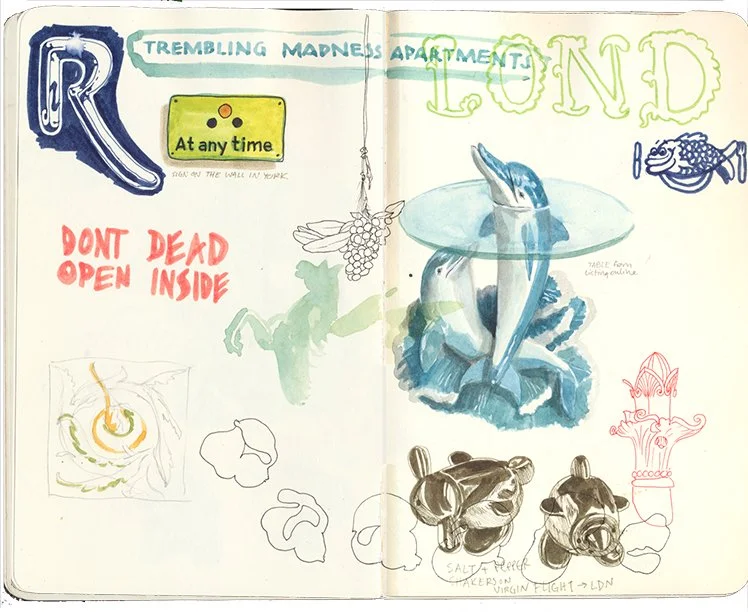 R
TREMBLING MADNESS APARTMENTS
LOND
At any time
SIGN ON THE WALL IN YORK
DONT DEAD
OPEN INSIDE
TABLE from
listing online
SALT + PEPPER
SHAKERS ON
VIRGIN FLIGHT → LDN